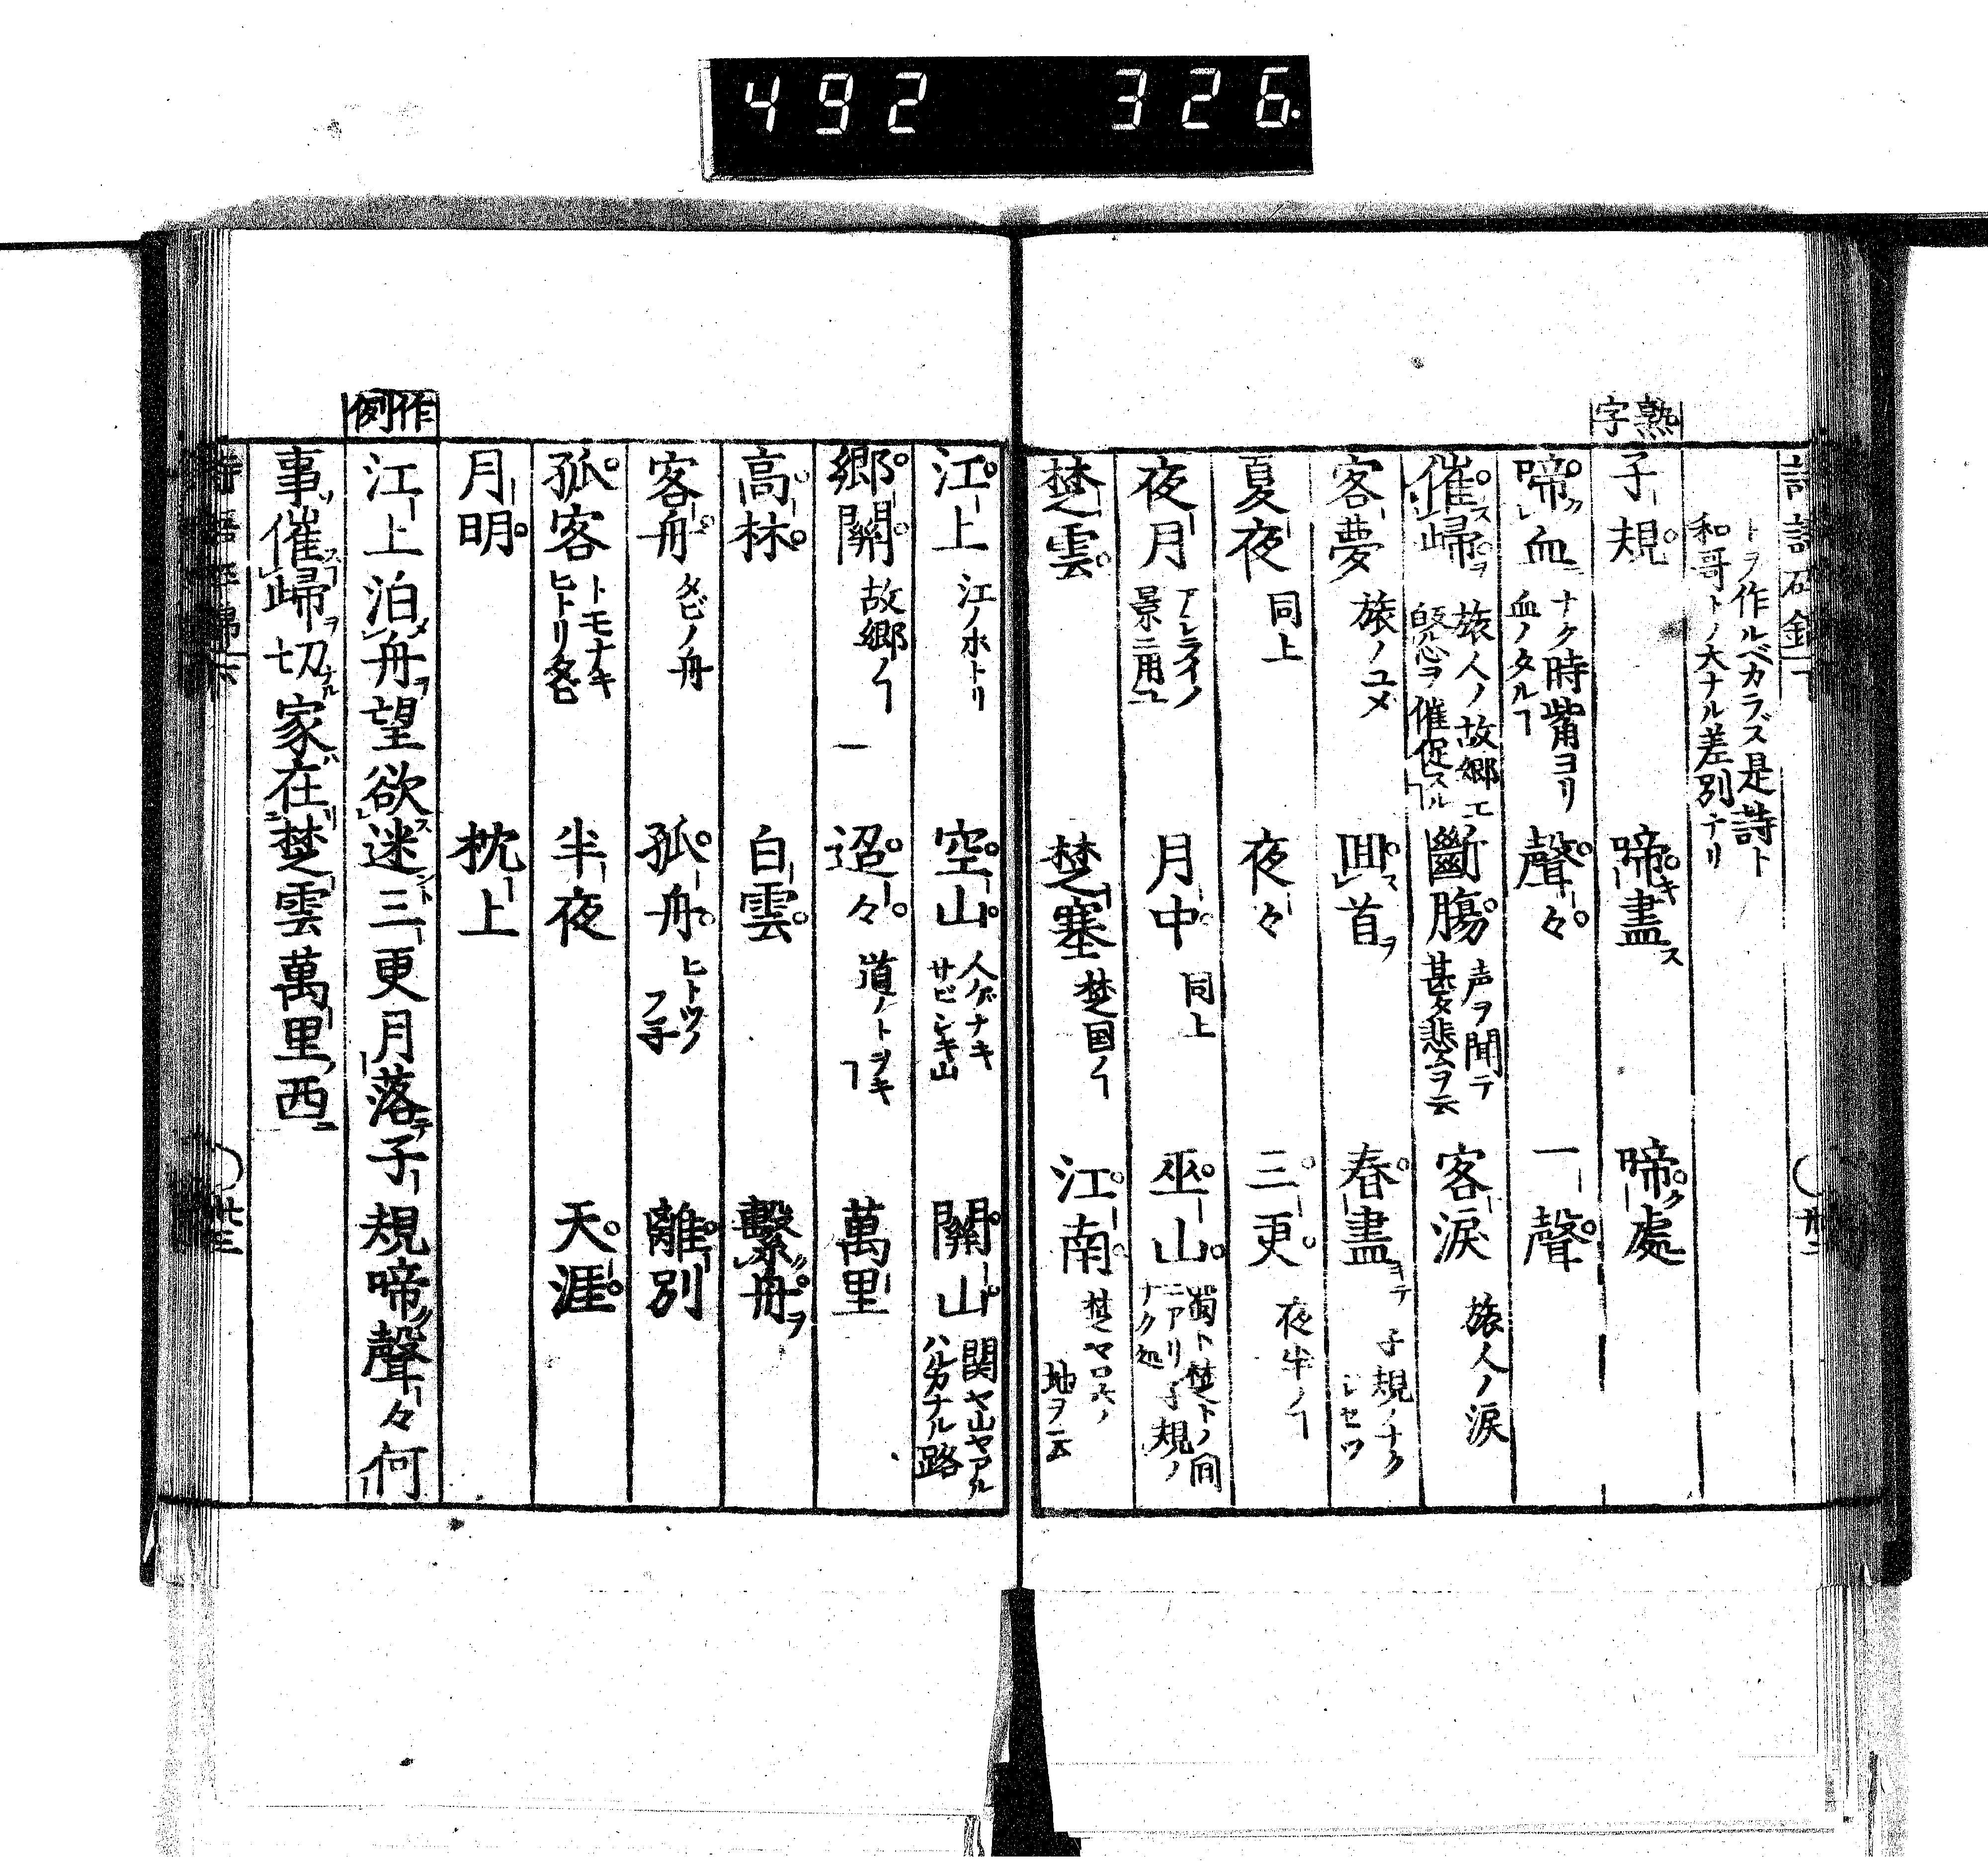 492 326.
トヲ作ルベカラズ是詩ト
和哥トノ大ナル差別ナリ
熟字
子規 啼盡 啼處
啼血 ナク時觜ヨリ血ノタルヿ 聲々 一聲
催歸 旅人ノ故郷エ皈ル心ヲ催促スルヿ 斷膓 声ヲ聞テ甚タ悲ムヲ云 客淚 旅人ノ淚
客夢 旅ノユメ 囬首 春盡 子規ノナクジセツ
夏夜 同上 夜々 三更 夜半ノヿ
夜月 アシライノ景ニ用ユ 月中 同上 巫山 蜀ト楚トノ間ニアリ子規ノナク処
楚雲 楚塞 楚国ノヿ 江南 楚ヤロ六ノ地ヲ云
江上 江ノホトリ 空山 人ゲナキサビシキ山 關山 関ヤ山ヤアルハルカナル路
郷關 故郷ノヿ 迢々 道ノトヲキヿ 萬里
高林 白雲 繫舟
客舟 タビノ舟 孤舟 ヒトツノフ子 離別
孤客 トモナキヒトリ客 半夜 天涯
月明 枕上
作例
江上泊舟望欲迷三更月落子規啼聲々何
事催歸切家在楚雲萬里西
廿三